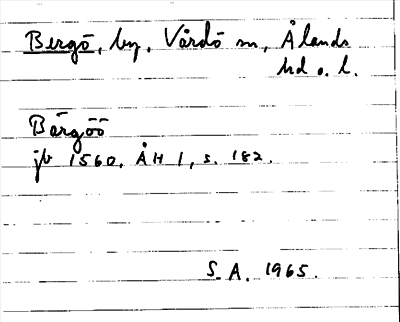 Bergö, by, Vårdö sn, Ålands
hd o. l.
Bärgöö
jb 1560, ÅH 1, s. 182.
S. A. 1965.